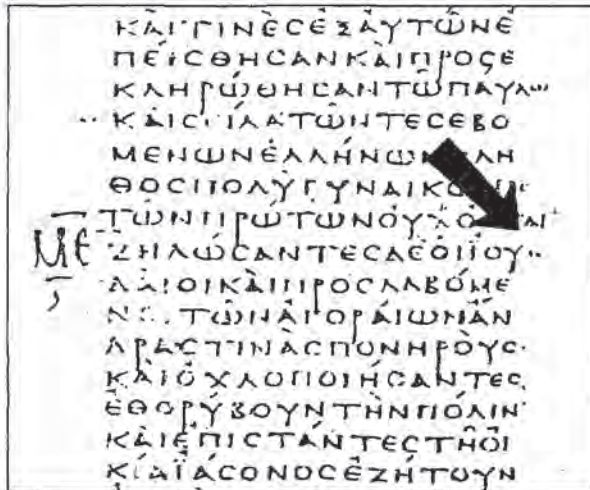 ΚΑΙΤΙΝΕϹΕΞΑΥΤΩΝΕ
ΠΕΙϹΘΗϹΑΝΚΑΙΠΡΟϹΕ
ΚΛΗΡΩΘΗϹΑΝΤΩΠΑΥΛ
ΚΑΙϹΙΛΑΤΩΝΤΕϹΕΒΟ
ΜΕΝΩΝΕΛΛΗΝΩΝ ΛΗ
ΘΟϹΠΟΛΥΓΥΝΑΙΚΩΝ
ΤΩΝΠΡΩΤΩΝΟΥΧΟ ΑΙ
ΜΕ ΖΗΛΩϹΑΝΤΕϹΔΕΟΙΪΟΥ
ΔΑΙΟΙΚΑΙΠΡΟϹΛΑΒΟΜΕ
ΝΟΙΤΩΝΑΓΟΡΑΙΩΝΑΝ
ΔΡΑϹΤΙΝΑϹΠΟΝΗΡΟΥϹ
ΚΑΙΟΧΛΟΠΟΙΗϹΑΝΤΕϹ
ΕΘΟΡΥΒΟΥΝΤΗΝΠΟΛΙΝ
ΚΑΙΕΠΙϹΤΑΝΤΕϹΤΗΟΙ
ΚΙΑΪΑϹΟΝΟϹΕΖΗΤΟΥΝ